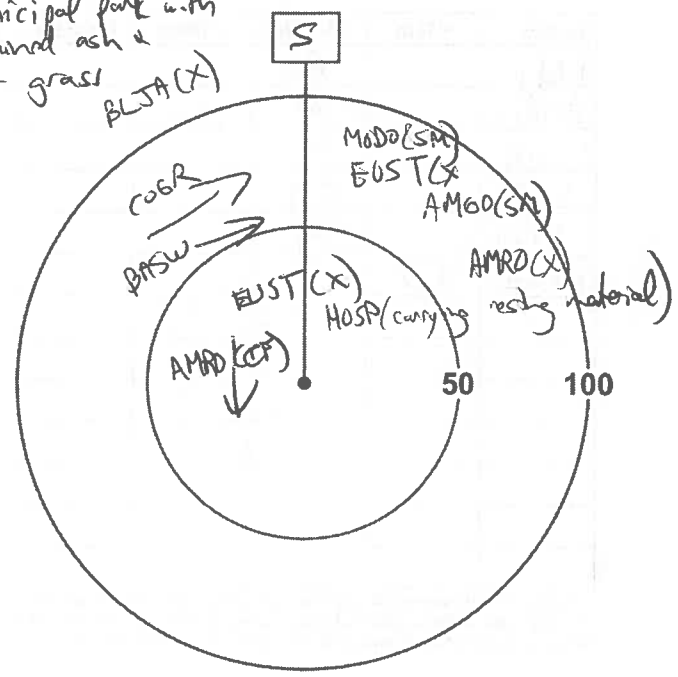 nicipal park with
ash &
grass
BLJA(X)
S
MODO(SM)
EUST(X
AMGO(SM)
COGR
AMRO(X)
BASW
EUST(X)
HOSP(carrying nesting material)
AMRO(CF)
50
100